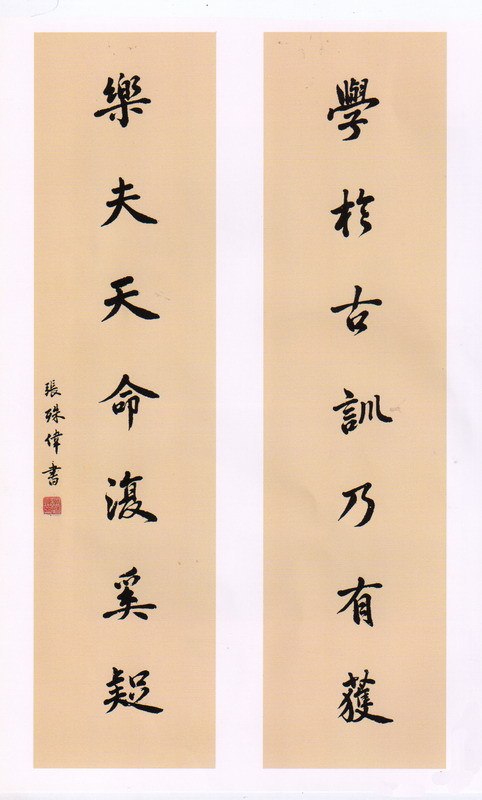 學於古訓乃有獲
樂夫天命復奚疑
張殊偉書